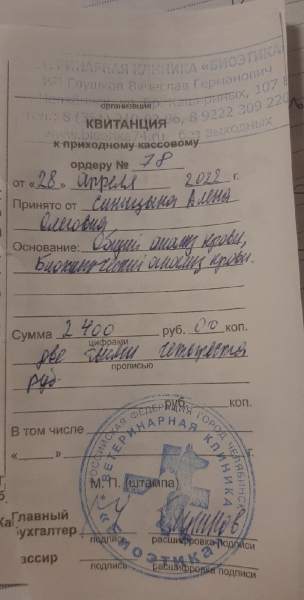 ВЕТЕРИНАРНАЯ КЛИНИКА «БИОЭТИКА»
ИП Глушков Вячеслав Германович
8 9222 309 220
без выходных
организация
КВИТАНЦИЯ
к приходному кассовому
ордеру № 78
от «28» апреля 2022 г.
Принято от Синицына Алена
Олеговна
Основание: Общий анализ крови,
Биохимический анализ крови.
Сумма 2 400 руб. 00 коп.
цифрами
две тысячи четыреста
прописью
руб.
руб. коп.
В том числе
« » г.
М. П. (штампа)
Главный
бухгалтер
подпись расшифровка подписи
Кассир
подпись расшифровка подписи
РОССИЙСКАЯ ФЕДЕРАЦИЯ ГОРОД ЧЕЛЯБИНСК
ВЕТЕРИНАРНАЯ КЛИНИКА
«Биоэтика»